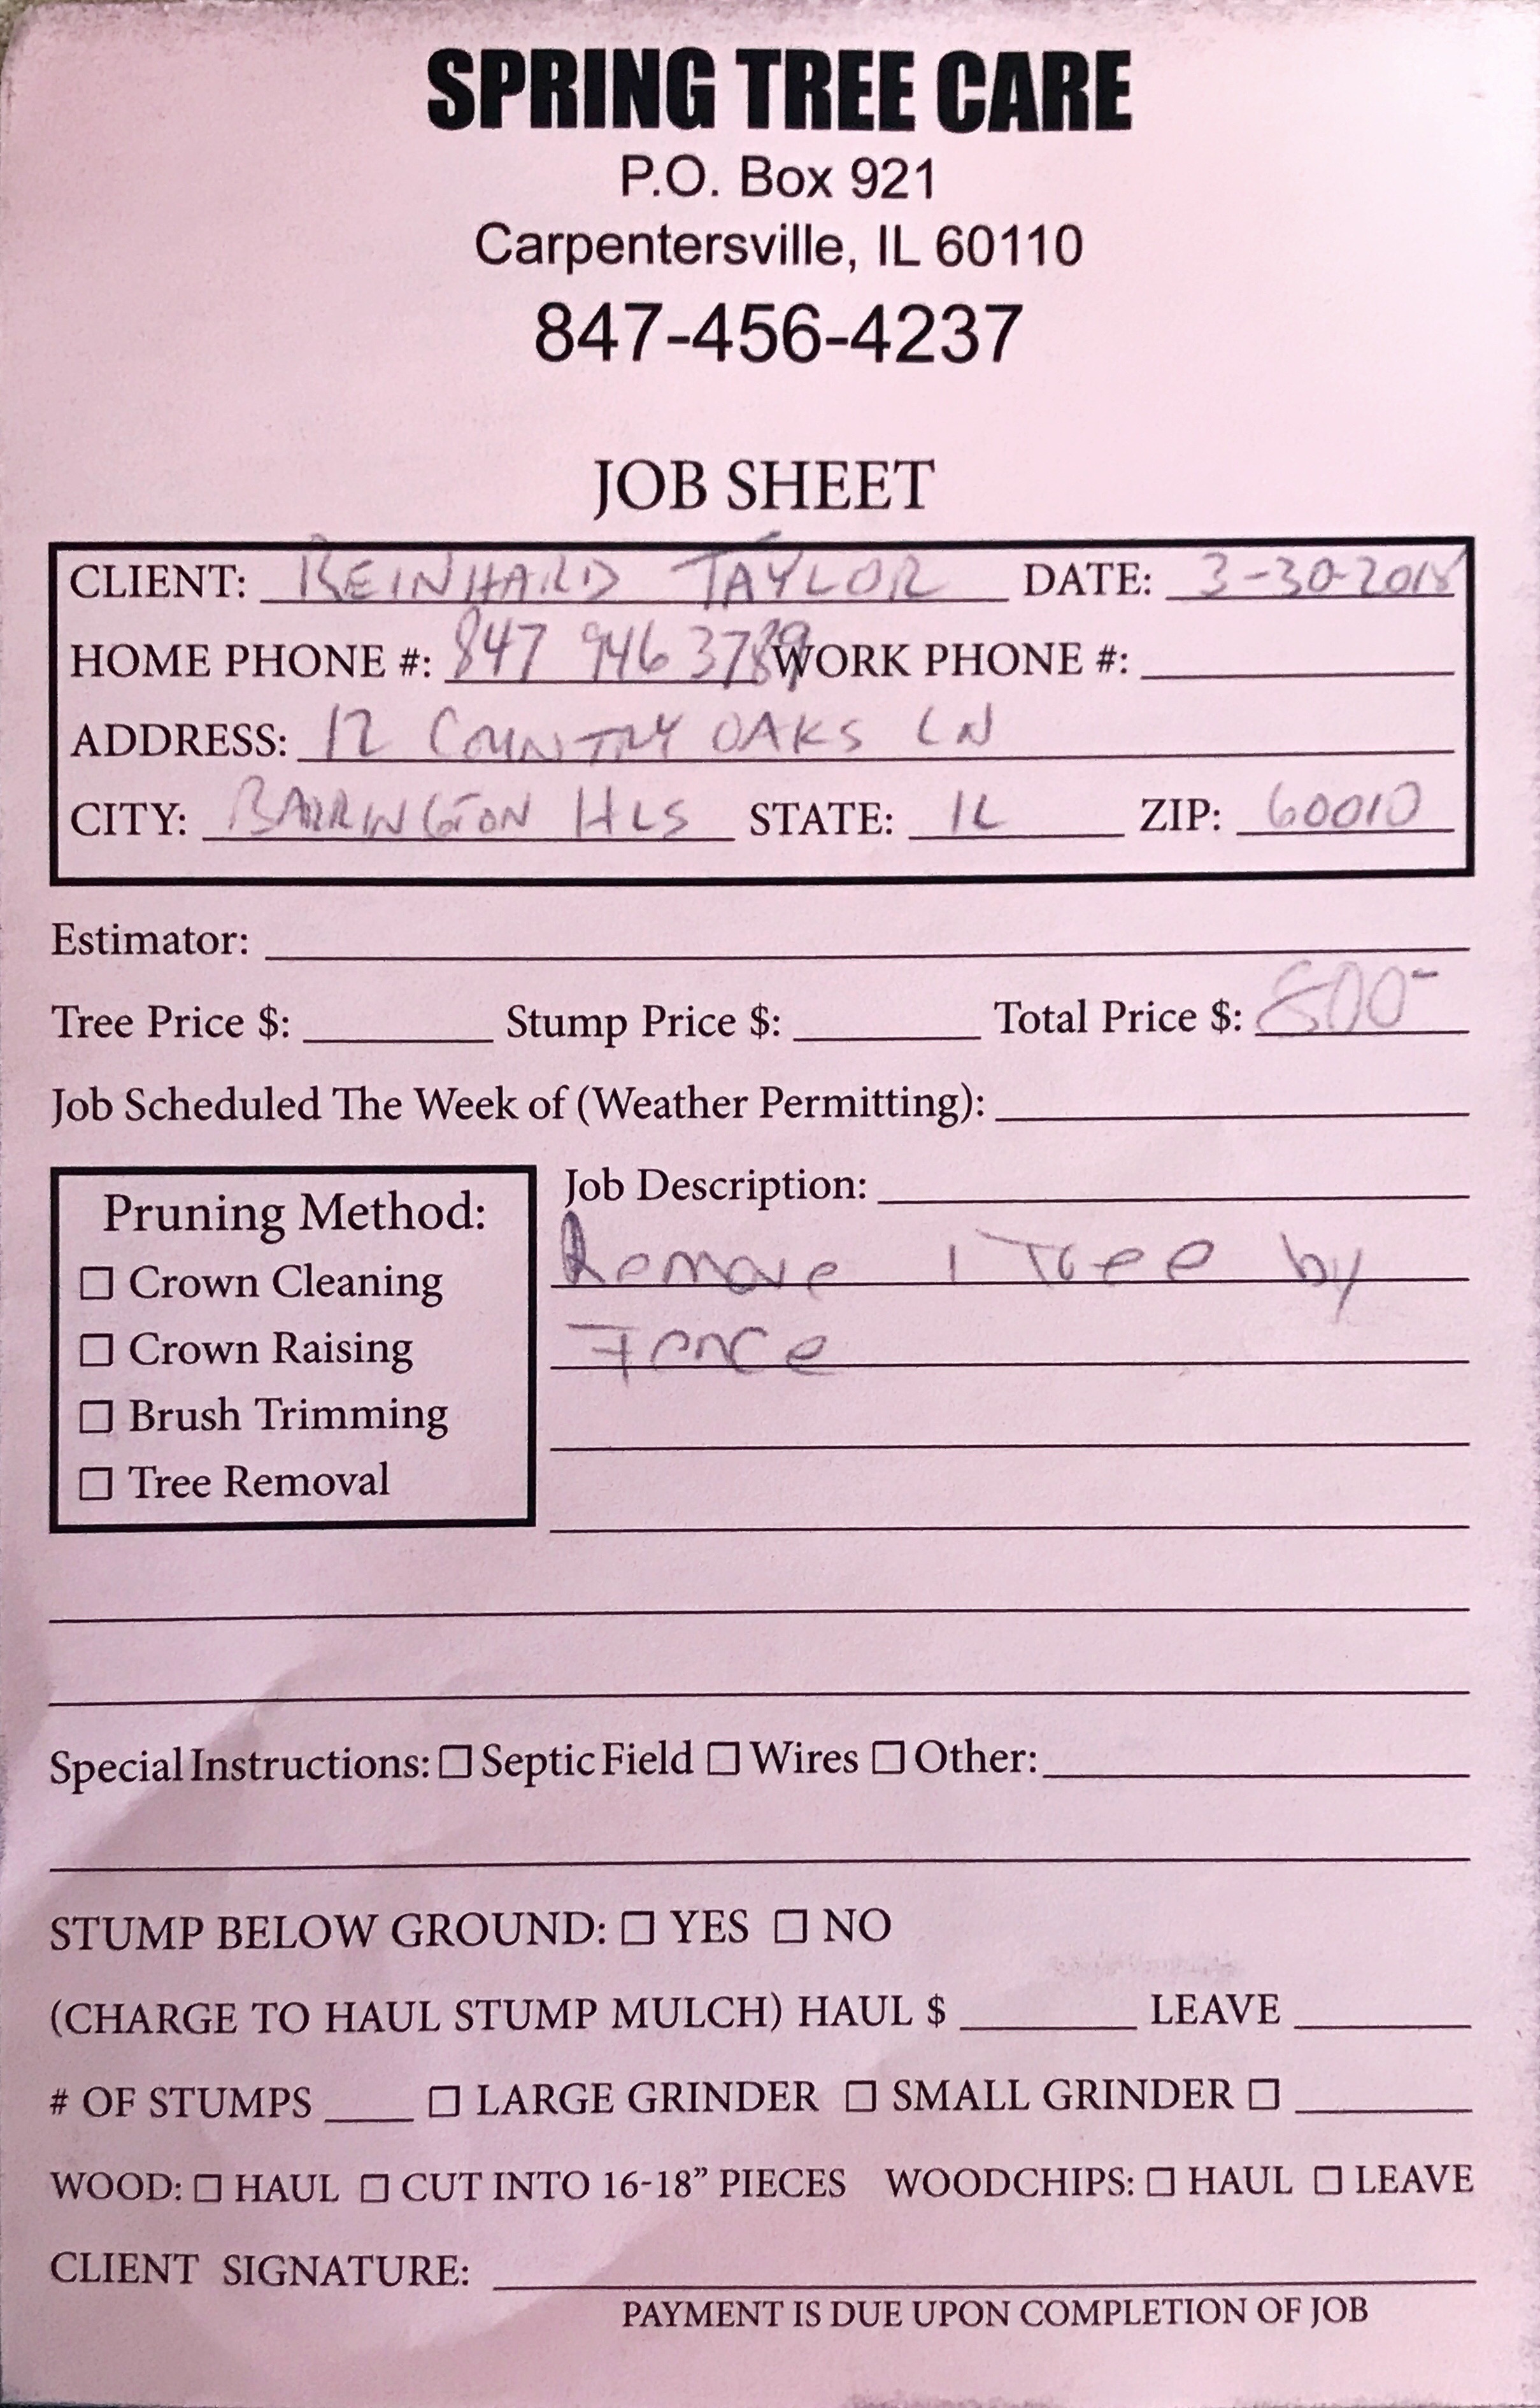 SPRING TREE CARE
P.O. Box 921
Carpentersville, IL 60110
847-456-4237
JOB SHEET
CLIENT: REINHARD TAYLOR DATE: 3-30-2018
HOME PHONE #: 847 946 WORK PHONE #:
ADDRESS: 12 COUNTRY OAKS LN
CITY: BARRINGTON HLS STATE: IL ZIP: 60010
Estimator:
Tree Price $: Stump Price $: Total Price $: 800-
Job Scheduled The Week of (Weather Permitting):
Pruning Method:
☐ Crown Cleaning
☐ Crown Raising
☐ Brush Trimming
☐ Tree Removal
Job Description:
Remove 1 Tree by
Fence
Special Instructions: ☐ Septic Field ☐ Wires ☐ Other:
STUMP BELOW GROUND: ☐ YES ☐ NO
(CHARGE TO HAUL STUMP MULCH) HAUL $ LEAVE
# OF STUMPS ☐ LARGE GRINDER ☐ SMALL GRINDER ☐
WOOD: ☐ HAUL ☐ CUT INTO 16-18” PIECES WOODCHIPS: ☐ HAUL ☐ LEAVE
CLIENT SIGNATURE:
PAYMENT IS DUE UPON COMPLETION OF JOB